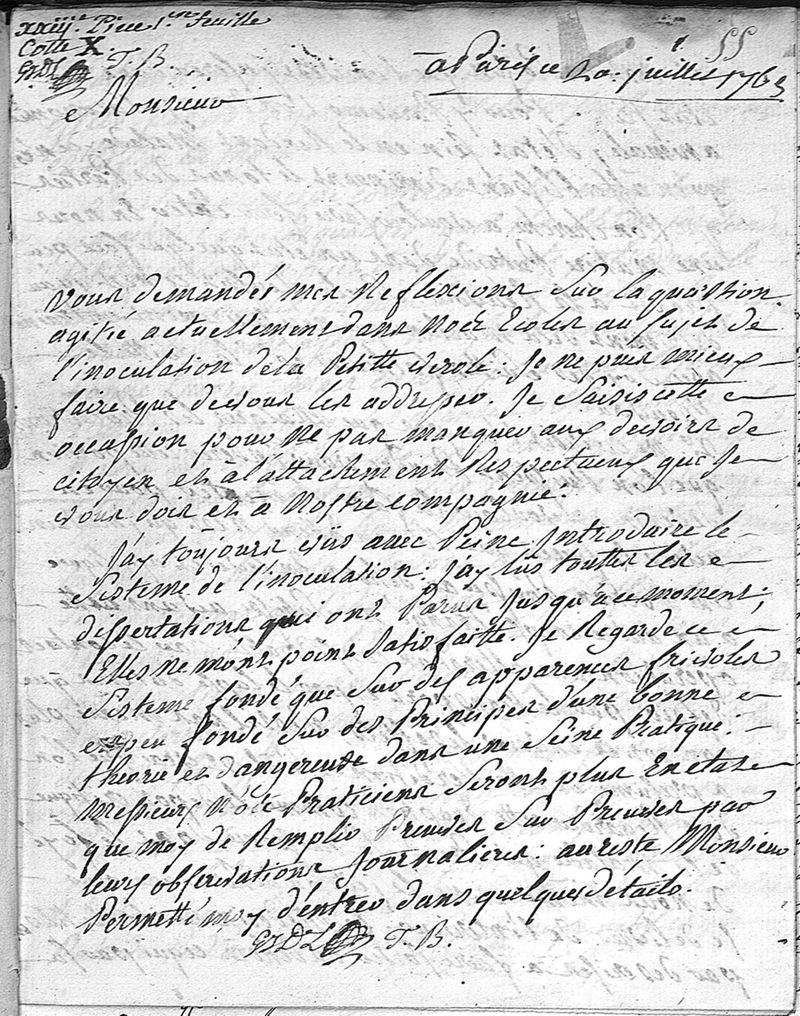 xxiije. Piece 1ere feuille
Cotte X
T. B.
a Paris ce 20. juillet 1763
Monsieur
vous demandés mes Reflexions sur la question
agitée actuellement dans nos Ecoles au sujet de
l'inoculation de la Petitte verole: Je ne puis mieux
faire que de vous les addresser. Je saisis cette
occassion pour ne pas manquer aux devoirs de
citoyen et à l'attachement Respectueux que Je
vous dois et à Nostre compagnie.
J'ay toujours vüs avec Peine Introduire le
sisteme de l'inoculation. J'ay lus touttes les
dissertations qui ont Parus Jusqu'a ce moment;
Elles ne m'ont point satisfaitte. Je Regarde ce
sisteme fondé que sur des apparences frivoles
et peu fondé sur des Principes d'une bonne
theorie et dangereuse dans une seine Pratique.
messieurs Praticiens seront plus En etat
que moy de Remplir Preuves sur Preuves par
leurs observations Journalieres: au reste Monsieur
Permetté moy d'éntrer dans quelques détails.
T. B.